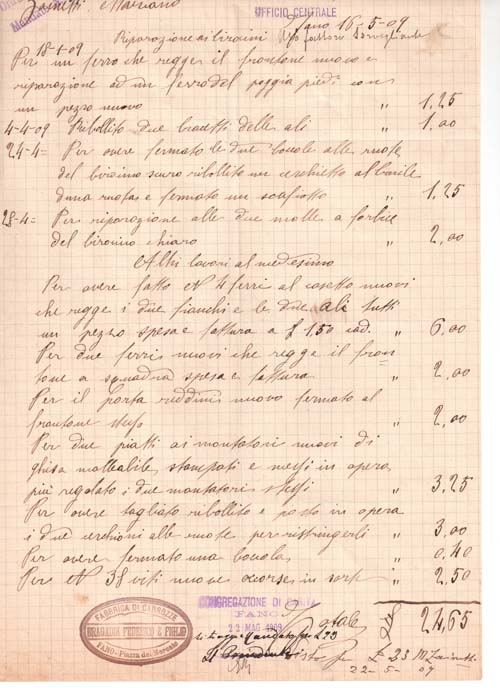 UFFICIO CENTRALE
Fano 16-5-09
Riparazione ai biroccini
18-1-09
Per un ferro che regge il frontone nuovo e
riparazione ad un ferro del poggia piedi con
un pezzo nuovo " 1,25
4-4-09 Ribollito due bracetti delle ali " 1,00
24-4= Per avere fermato le due boccole alle ruote
del biroccino scuro ribollito un cerchietto al barile
d'una ruota e fermato un scafiotto " 1,25
28-4= Per riparazione alle due molle a forbice
del biroccino chiaro " 2,00
Altri lavori al medesimo
Per avere fatto N 4 ferri al casetto nuovi
che regge i due fianchi e le due ali tutti
un pezzo spesa e fattura a £ 1,50 cad. " 6,00
Per due ferri nuovi che regge il fron
tone a squadra spesa e fattura " 2,00
Per il porta reddini nuovo fermato al
frontone stesso " 2,00
Per due piatti ai montatori nuovi di
ghisa malleabile stampati e messi in opera
più regolato i due montatori stessi " 3,25
Per avere tagliato ribollito e posto in opera
i due cerchioni alle ruote per ristringerli " 3,00
Per avere fermato una boccola " 0,40
Per N 38 viti nuove occorse in sorte " 2,50
Totale £ 24,65
CONGREGAZIONE DI CARITÀ
FANO
22 MAG 1909
FABBRICA DI CARROZZE
BRAGADIN FEDERICO E FIGLIO
FANO - Piazza del Mercato
Visto per £ 23
22-5-09